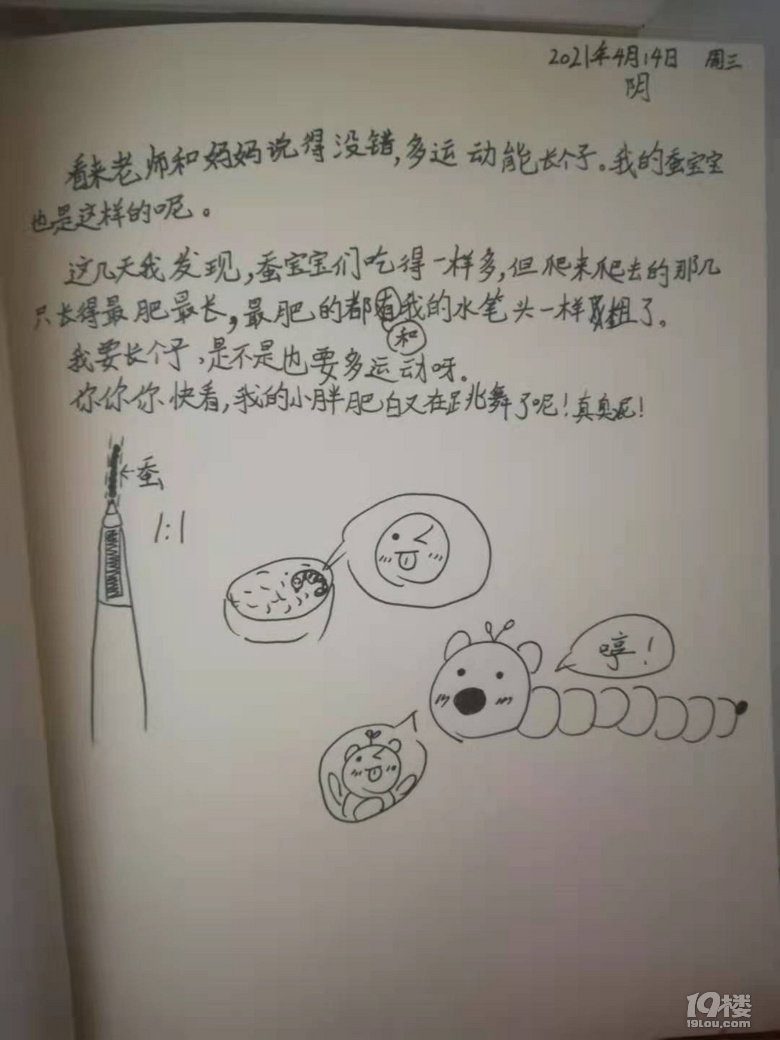 2021年4月14日 周三
阴
看来老师和妈妈说得没错,多运动能长个子。我的蚕宝宝
也是这样的呢。
这几天我发现,蚕宝宝们吃得一样多,但爬来爬去的那几
只长得最肥最长,最肥的都有我的水笔头一样粗了。
和
我要长个子,是不是也要多运动呀.
你你你快看,我的小胖肥白又在跳舞了呢!真臭屁!
←蚕
1:1
哼!
19楼
19lou.com